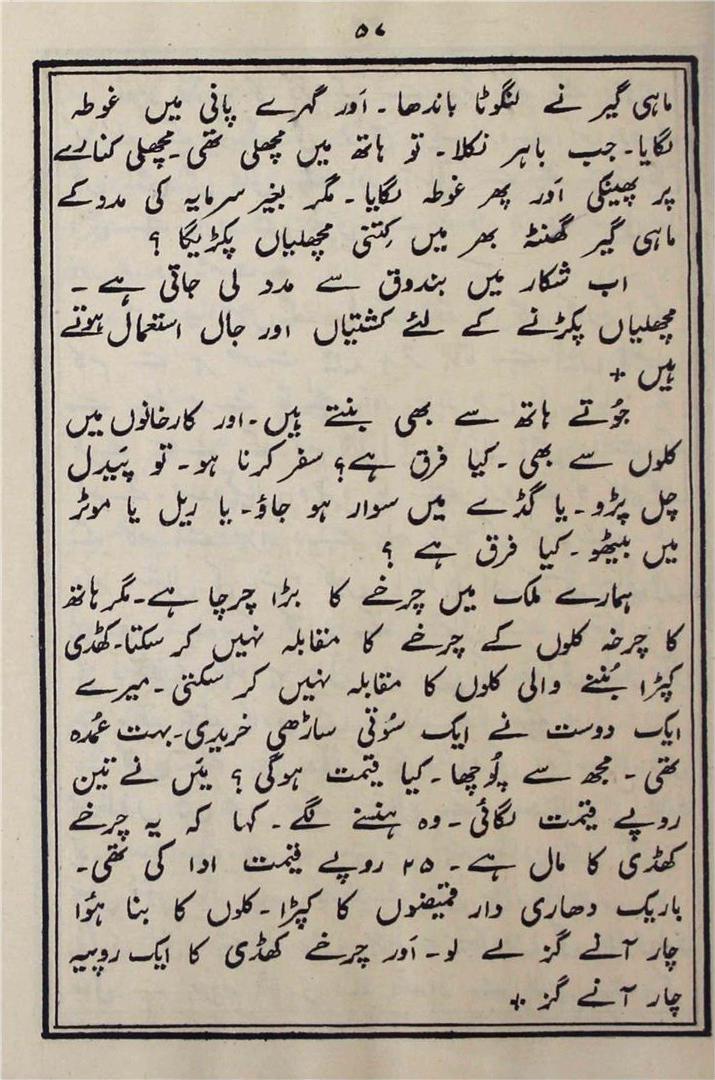 ۵۷
ماہی گیر نے لنگوٹا باندھا۔ اَور گہرے پانی میں غوطہ
لگایا۔ جب باہر نکلا۔ تو ہاتھ میں مچھلی تھی۔ مچھلی کنارے
پر پھینکی اَور پھر غوطہ لگایا۔ مگر بغیر سرمایہ کی مدد کے
ماہی گیر گھنٹہ بھر میں کِتنی مچھلیاں پکڑیگا ؟
اب شکار میں بندوق سے مدد لی جاتی ہے ۔
مچھلیاں پکڑنے کے لئے کشتیاں اور جال استعمال ہوتے
ہیں +
جُوتے ہاتھ سے بھی بنتے ہیں۔ اور کارخانوں میں
کلوں سے بھی ۔ کیا فرق ہے؟ سفر کرنا ہو۔ تو پَیدل
چل پڑو۔ یا گڈے میں سوار ہو جاؤ۔ یا ریل یا موٹر
میں بیٹھو ۔ کیا فرق ہے ؟
ہمارے ملک میں چرخے کا بڑا چرچا ہے۔ مگر ہاتھ
کا چرخہ کلوں کے چرخے کا مقابلہ نہیں کر سکتا۔ کھڈی
کپڑا بُننے والی کلوں کا مقابلہ نہیں کر سکتی ۔ میرے
ایک دوست نے ایک سُوتی ساڑھی خریدی۔ بہت عُمدہ
تھی ۔ مجھ سے پُوچھا ۔ کیا قیمت ہوگی ؟ میَں نے تین
روپے قیمت لگائی ۔ وہ ہنسنے لگے ۔ کہا کہ یہ چرخے
کھڈی کا مال ہے۔ ۲۵ روپے قیمت ادا کی تھی۔
باریک دھاری دار قمیضوں کا کپڑا۔ کلوں کا بنا ہُوا
چار آنے گز لے لو۔ اَور چرخے کھڈی کا ایک روپیہ
چار آنے گز +